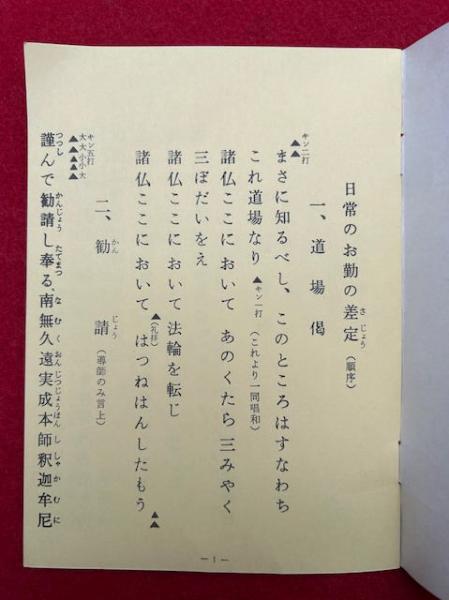 日常のお勤の差定（順序）
さじょう
一、道場偈
キン二打
▲▲
まさに知るべし、このところはすなわち
これ道場なり ▲キン一打（これより一同唱和）
諸仏ここにおいて あのくたら三みやく
三ぼだいをえ
諸仏ここにおいて 法輪を転じ
▲（礼拝）
諸仏ここにおいて はつねはんしたもう ▲▲
二、勧請（導師のみ言上）
かんじょう
キン五打
大大小小大
▲▲▲▲▲
謹んで勧請し奉る、南無久遠実成本師釈迦牟尼
つつし かんじょう たてまつ なむくおんじつじょうほんししゃかむに
―1―